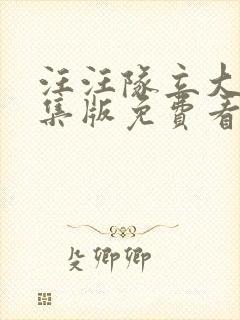 汪汪队立大
集版免费看
殳卿卿